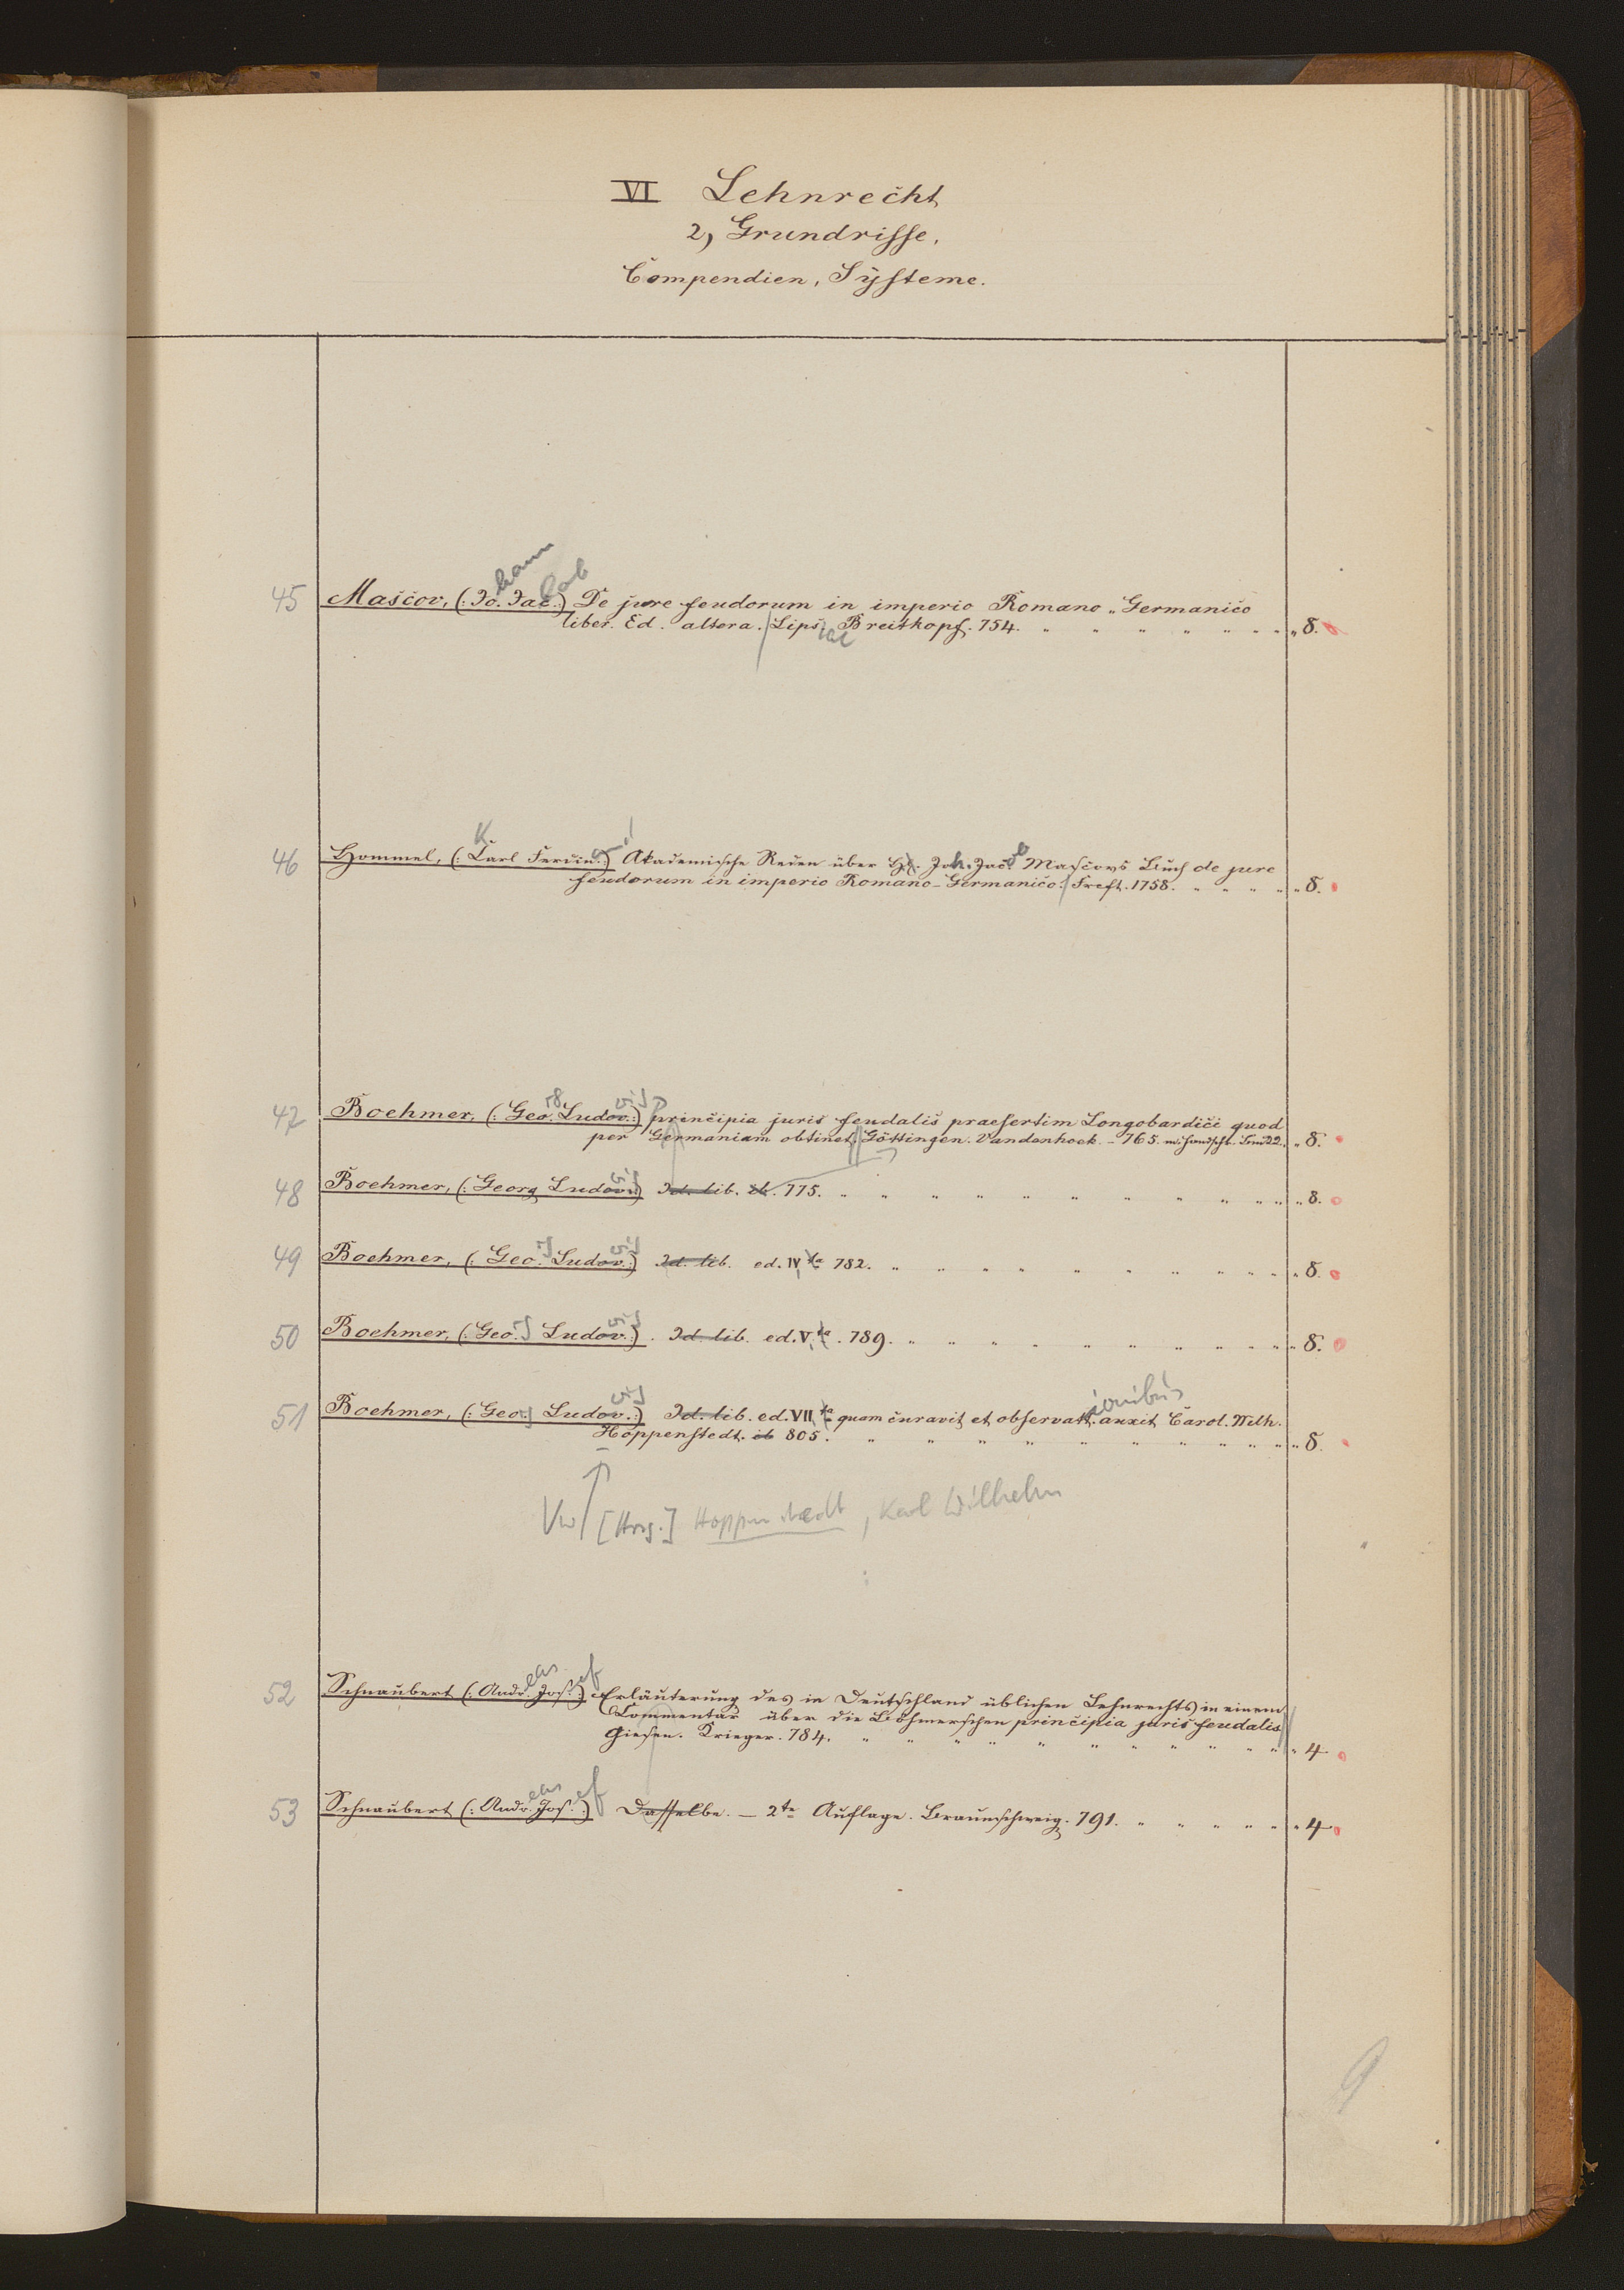 VI Lehnrecht
2, Grundrisse,
Compendien, Systeme.
45 Mascov, (: Jo. Jac.) De jure feudorum in imperio Romano „Germanico
liber. Ed. altera. Lips. Breitkopf. 754. „ 8.
46 Hommel, (: Carl Ferdin.:) Akademische Reden über H. Joh. Jacob Mascovs Buch de jure
feudorum in imperio Romano-Germanico. Frcft. 1758. „ 8.
47 Boehmer, (: Geo. Ludov.:) principia juris feudalis praesertim Longobardici quod
per Germaniam obtinet. Göttingen. Vandenhoek - 765. m. handschr. „ 8.
48 Boehmer, (: Georg Ludov:) Id. lib. ib. 775. „ 8.
49 Boehmer, (: Geo. Ludov.:) Id. lib. ed. IV ta 782. „ 8.
50 Boehmer, (: Geo. Ludov.:). Id. lib. ed. V. ta. 789. „ 8.
51 Boehmer, (: Geo. Ludov.:) Id. lib. ed. VII ta quam curavit et observatt. auxit Carol. Wilh.
Hoppenstedt. ib 805. „ 8.
Vw [Hrsg.] Hoppenstedt, Karl Wilhelm
52 Schnaubert (: Andr. Jos.:) Erläuterung des in Deutschland üblichen Lehnrechts in einem
Commentar über die Böhmerschen principia juris feudalis
Giesen. Krieger. 784. „ 4
53 Schnaubert (: Andr. Jos.:) Dasselbe. — 2te Auflage. Braunschweig. 791. „ 4
9